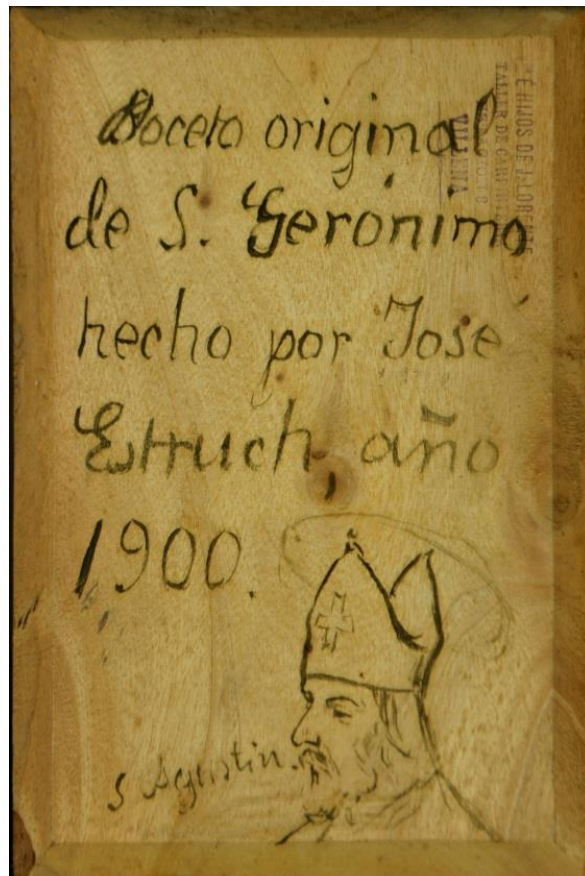 Boceto original
de S. Gerónimo
hecho por José
Estruch, año
1900.
S Agustin.
HIJOS DE J. LORENTE
TALLER DE
VILLENA